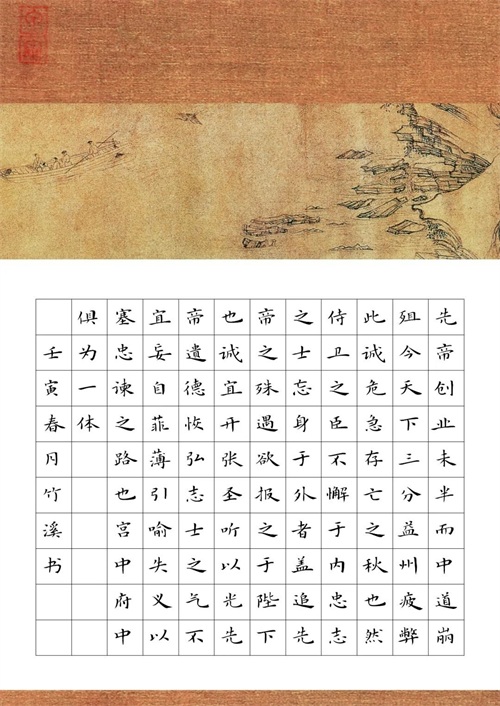 先帝创业未半而中道崩
殂今天下三分益州疲弊
此诚危急存亡之秋也然
侍卫之臣不懈于内忠志
之士忘身于外者盖追先
帝之殊遇欲报之于陛下
也诚宜开张圣听以光先
帝遗德恢弘志士之气不
宜妄自菲薄引喻失义以
塞忠谏之路也宫中府中
俱为一体
壬寅春月竹溪书